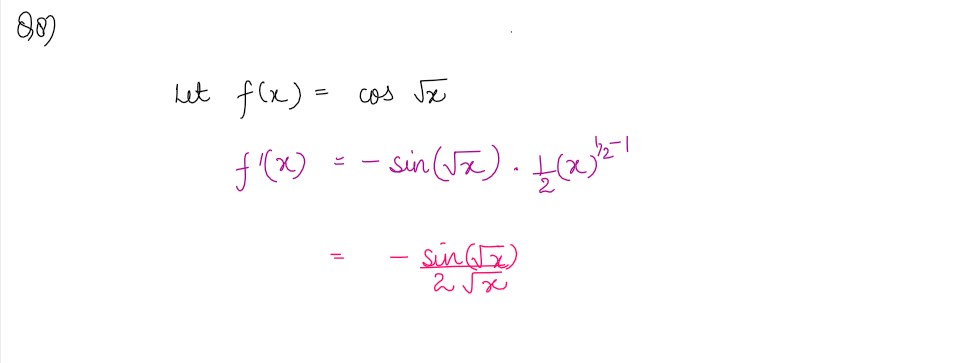 Q8)
Let f(x) = cos √x
f'(x) = - sin(√x) . 1/2 (x)^1/2-1
= - sin(√x) / 2√x